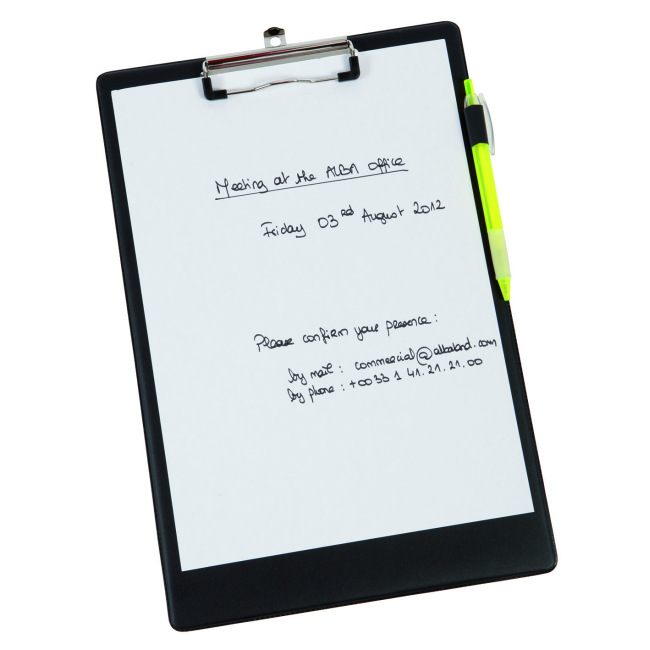 Meeting at the ALBA office
Friday 03rd August 2012
Please confirm your presence :
by mail : commercial@albaland.com
by phone : +0033 1 41.21.21.00